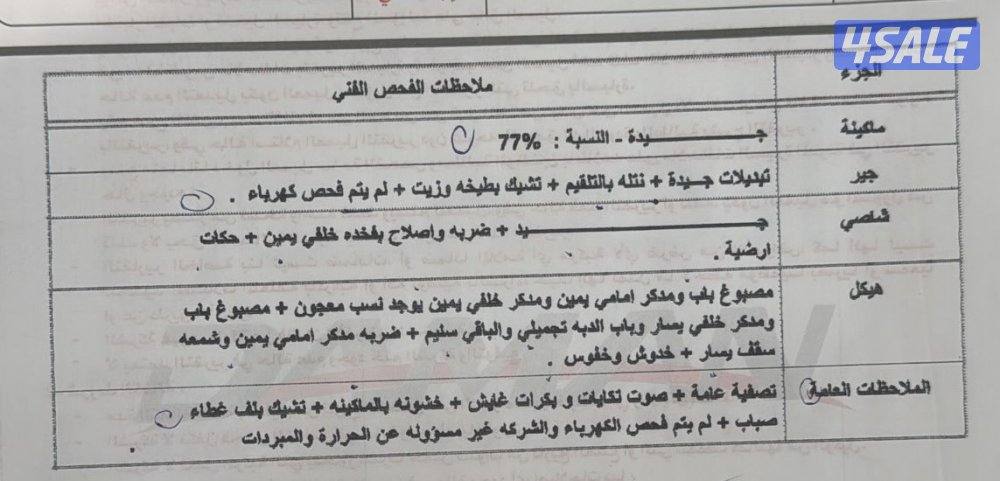 4SALE
الجزء
ملاحظات الفحص الفني
ماكينة
جـــــيدة - النسبة : 77%
جير
تبديلات جـيدة + نتله بالتلقيم + تشيك بطيخه وزيت + لم يتم فحص كهرباء .
شاصي
جـــــــــــيد + ضربه واصلاح بفخده خلفي يمين + حكات
ارضية .
هيكل
مصبوغ باب ومدكر امامي يمين ومدكر خلفي يمين يوجد نسب معجون + مصبوغ باب
ومدكر خلفي يسار وباب الدبه تجميلي والباقي سليم + ضربه مدكر امامي يمين وشمعه
سقف يسار + خدوش وخفوس .
الملاحظات العامة
تصفية عامة + صوت تكايات و بكرات غايش + خشونه بالماكينه + تشيك بلف غطاء
صباب + لم يتم فحص الكهرباء والشركه غير مسؤوله عن الحرارة والمبردات .